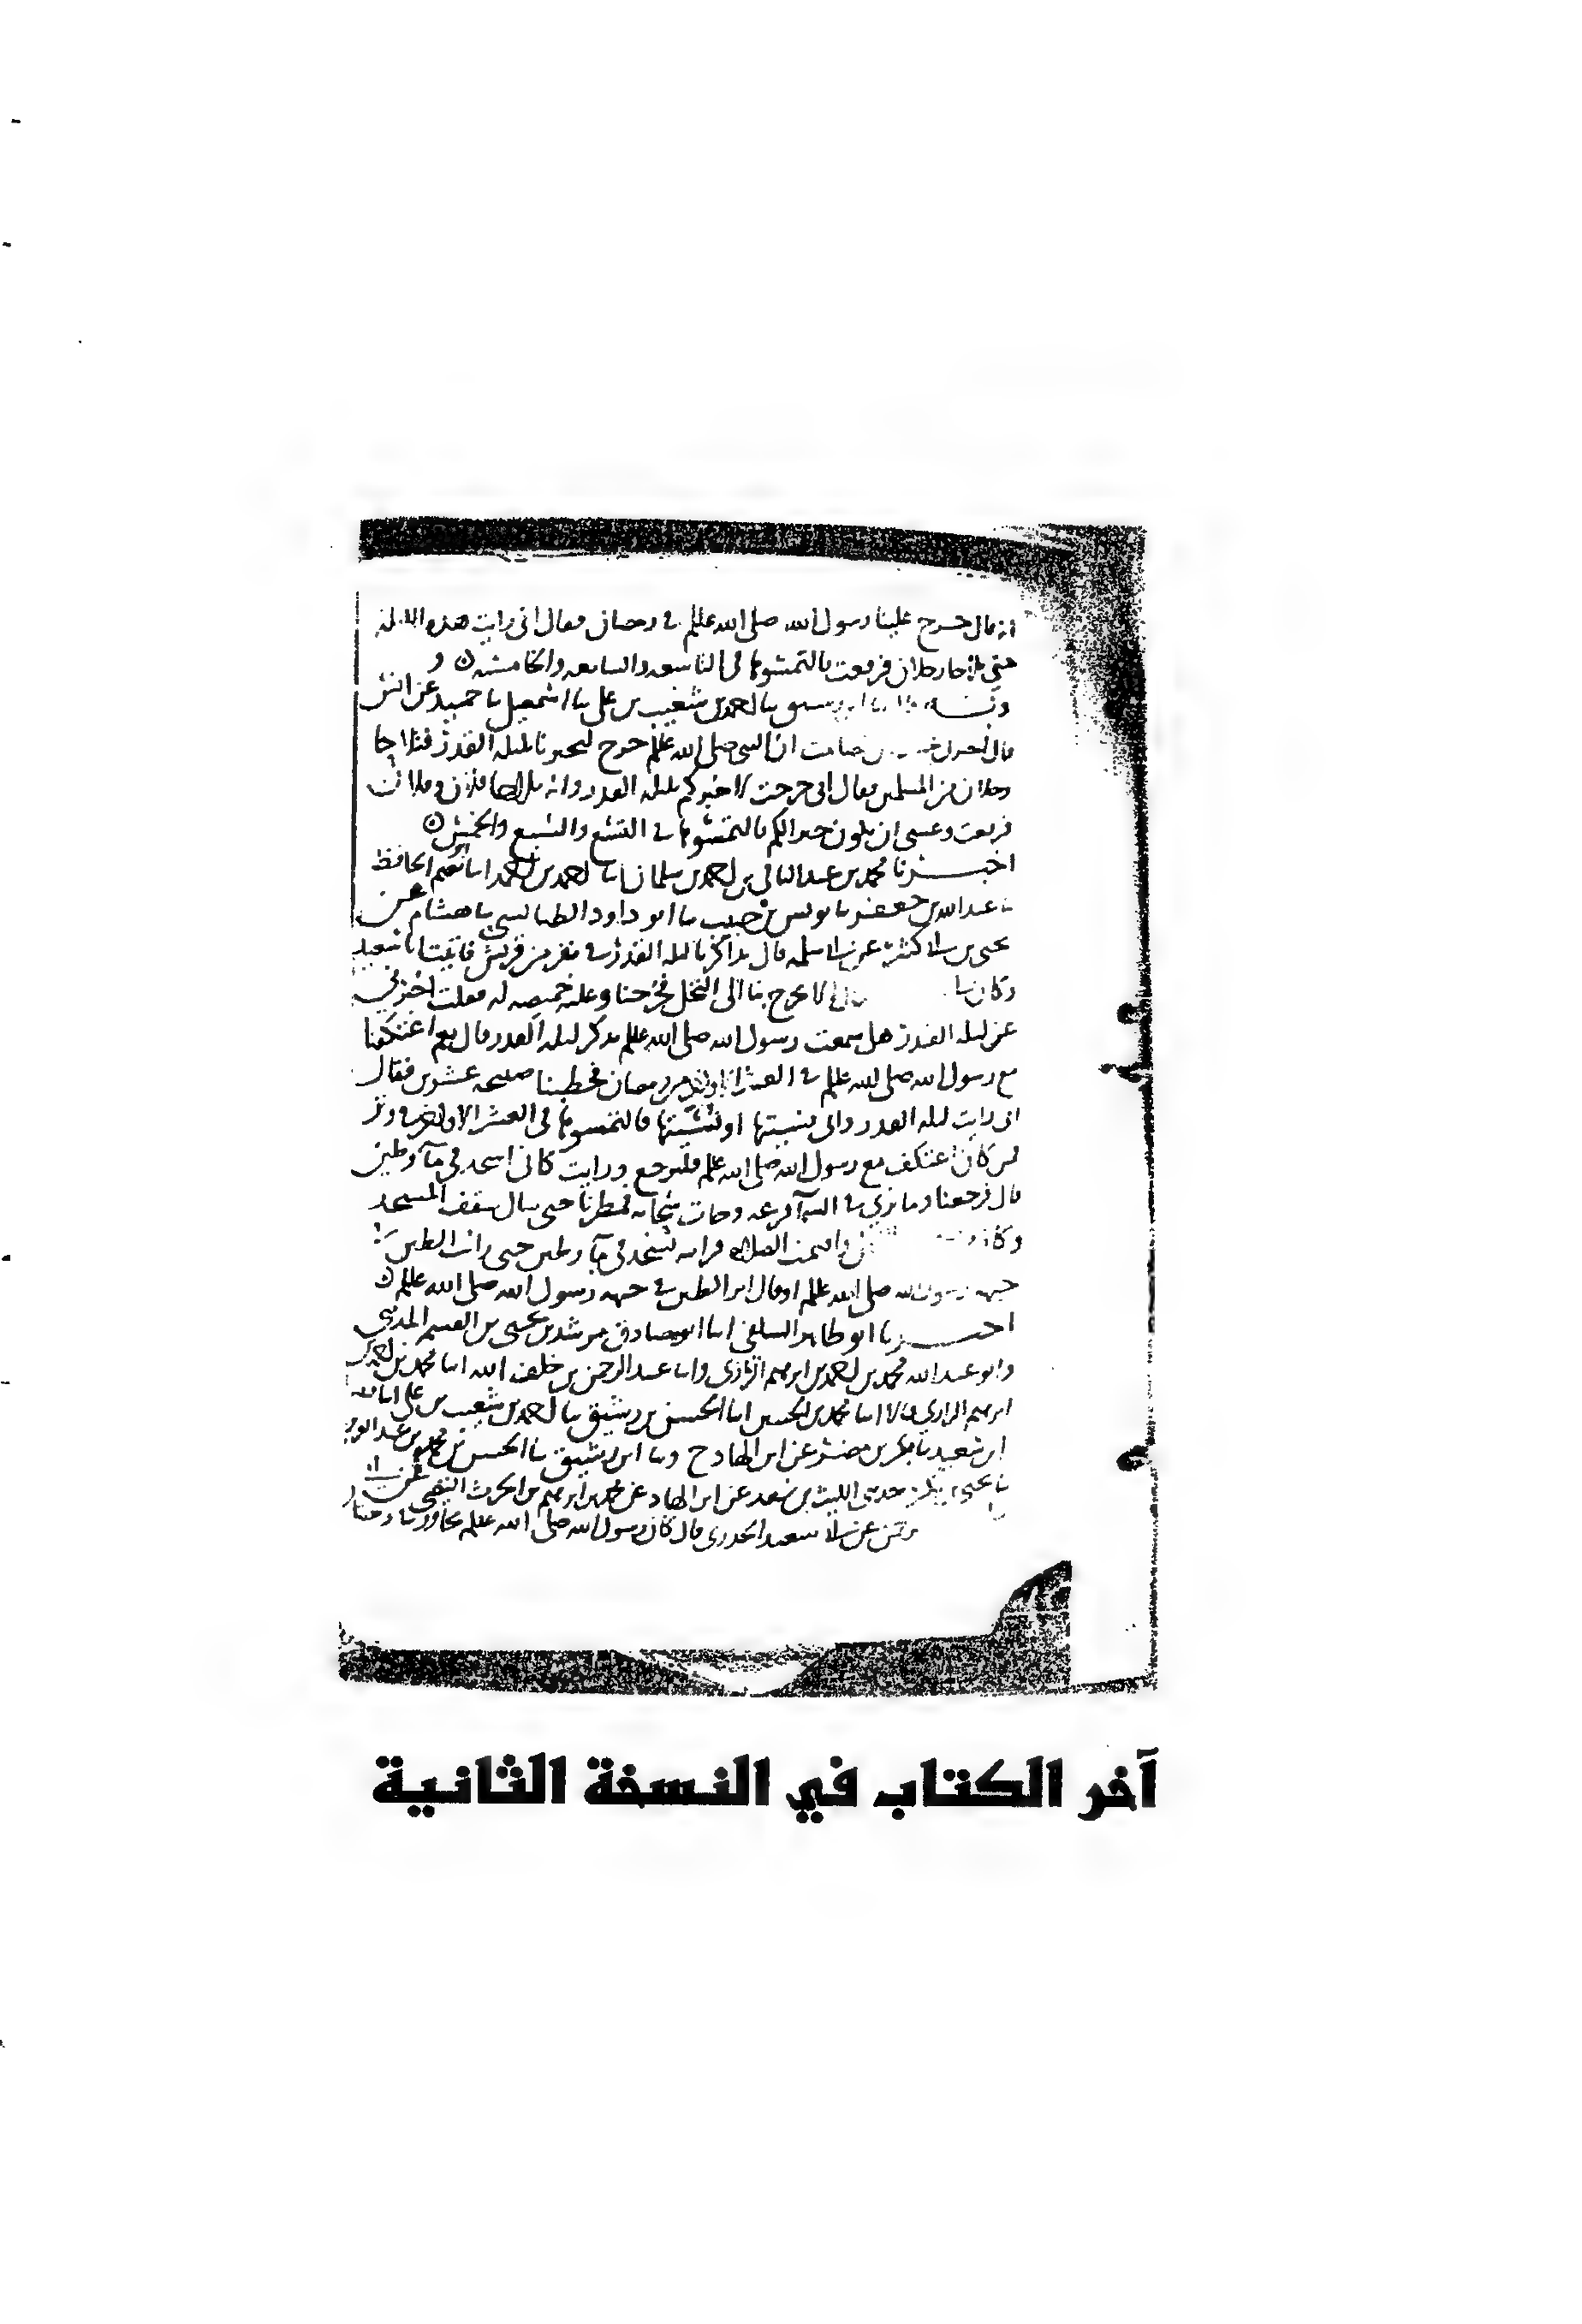 انه قال خرج علينا رسول الله صلى الله علىم في رمضان فقال انى رايت هذه الليلة
حتى تلاحا رجلان فرفعت فالتمسوها فى التاسعه والسابعه والخامسه
وبه ابن رشيق نا احمد بن شعيب بن على نا اسمعيل نا حميد عن انس
قال اخبرنى بن صامت ان النبى صلى الله علىم خرج ليخبرنا بليله القدر فتلاحا
رجلان من المسلمين فقال انى خرجت لاخبركم بليله القدر وانه تلاحا فلان وفلان
فرفعت وعسى ان يكون خيرا لكم فالتمسوها في التسع والسبع والخمس
اخبرنا محمد بن عبد الباقى بن احمد بن سلمان انا احمد بن احمد انا ابو نعيم الحافظ
نا عبد الله بن جعفر نا يونس بن حبيب نا ابو داود الطيالسي نا هشام عن
يحيى بن ابى كثير عن ابى سلمه قال تذاكرنا ليله القدر في نفر من قريش فاتيت ابا سعيد
وكان لى الا تخرج بنا الى النخل فخرجنا وعليه خميصه له فقلت اخبرني
عن ليله القدر هل سمعت رسول الله صلى الله علىم يذكر ليله القدر قال نعم اعتكفنا
مع رسول الله صلى الله علىم في العشر من رمضان فخطبنا صبيحه عشرين فقال
انى رايت ليله القدر وانى نسيتها او نسيتها فالتمسوها فى العشر الاواخر في وتر
فمن كان اعتكف مع رسول الله صلى الله علىم فليرجع ورايت كانى اسجد في مآ وطين
قال فرجعنا وما نري في السمآ قزعه وجات سحابه فمطرنا حتى سال سقف المسجد
وكان واقيمت الصلاه فرايته يسجد في مآ وطين حتى رايت الطين
جبهه رسول الله صلى الله علىم او قال اثر الطين في جبهه رسول الله صلى الله علىم
اخبرنا ابو طاهر السلفي انا ابو صادق مرشد بن يحيى بن القسم المدني
وابو عبد الله محمد بن احمد بن ابرهيم الرازى وانا عبد الرحمن بن خلف الله انا محمد بن احمد بن
ابرهيم الرازي قالا انا محمد بن الحسين انا الحسن بن رشيق نا احمد بن شعيب بن على انا
ابن سعيد نا بكر بن مضر عن ابن الهاد ح ونا ابن رشيق نا الحسن بن محمد بن عبد العزيز
نا يحيى بن بكير حدثنى الليث بن سعد عن ابن الهاد عن محمد بن ابرهيم بن الحرث التيمى عن
عن ابى سعيد الخدرى قال كان رسول الله صلى الله علىم يجاور
آخر الكتاب في النسخة الثانية